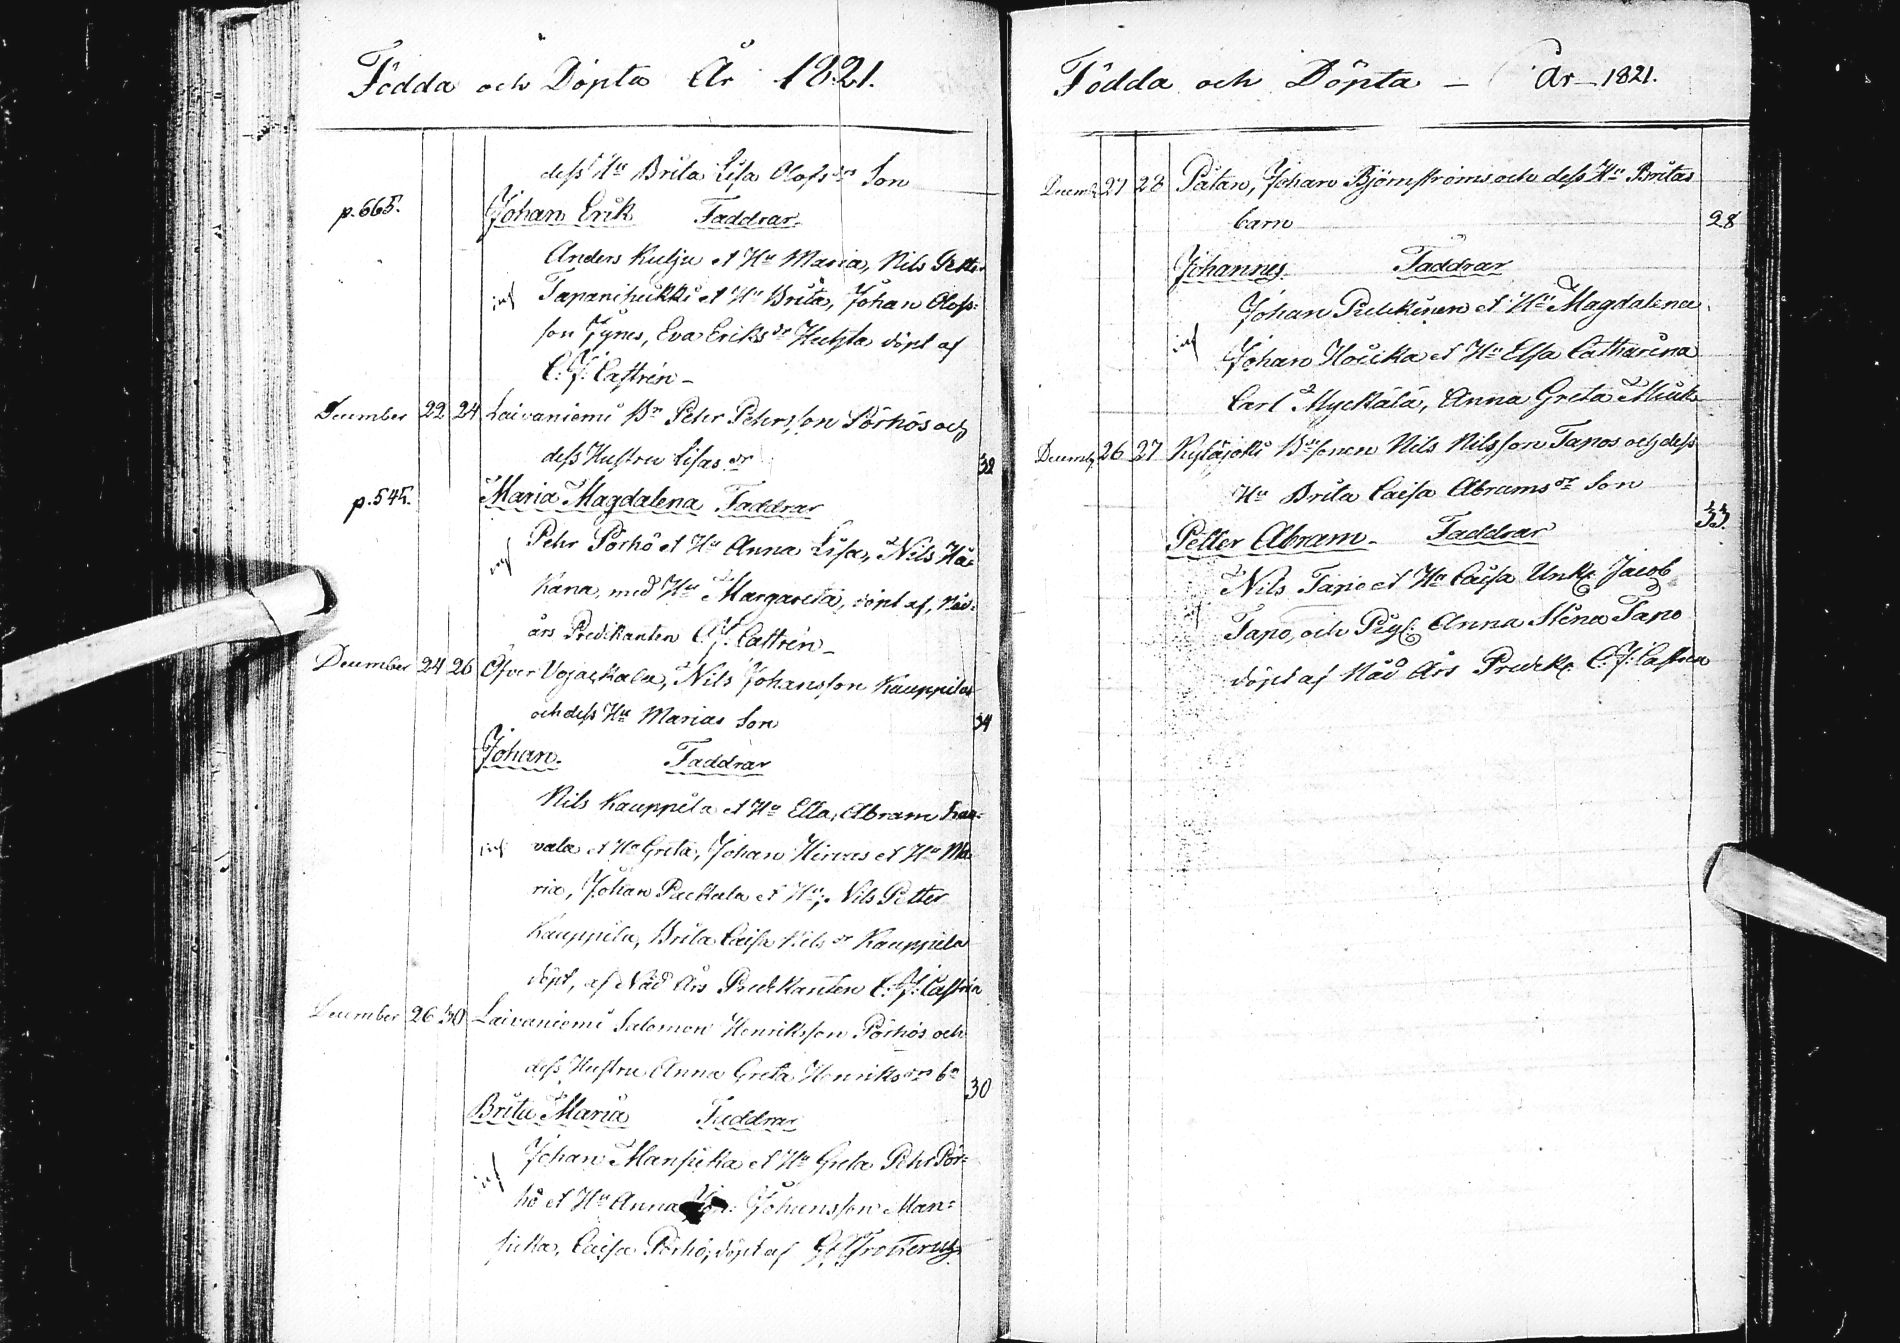 Födda och Döpta År 1821.
dess Hu Brita Lisa Olofsdrs Son
p. 665. Johan Erik Faddrar
Anders Kulju et Hu Maria, Nils Petter
inf Tapanihuikki et Hu Brita, Johan Olofs=
son Jynes, Eva Eriksdr Huhta döpt af
C. J. Castrén –
December 22 24 Laivaniemi Bn Pehr Pehrsson Pörhös och
dess Hustru Lisas dr 32
p. 545. Maria Magdalena Faddrar
inf Pehr Pörhö et Hu Anna Lisa, Nils
Kana, med Hu Margareta, döpt af, Nåd=
års Predikanten C. J. Castrén –
December 24 26 Öfver Vojackala, Nils Johansson Kauppilas
och dess Hu Marias Son 34
Johan. Faddrar
Nils Kauppila et Hu Ella, Abram
inf vala et Hu Greta, Johan Hirvas et Hu Ma
ria, Johan Packala et Hu; Nils Petter
Kauppila, Brita Caisa Nilsdr Kauppila
döpt, af Nåd Års Predikanten C. J. Castrén
December 26 30 Laivaniemi Salomon Henriksson Pörhös och
dess Hustru Anna Greta Henriksdrs bn 30
Brita Maria Faddrar
inf Johan Mansicka et Hu Greta Pehr Pör=
hö et Hu Anna Johansson Man=
sicka, Caisa Pörhö, döpt af
Födda och Döpta – År – 1821.
Decemb 27 28 Påtan, Johan Björnströms och dess Hu Britas
barn 28
Johannes Faddrar
Johan Pulckinen et Hu Magdalena
inf Johan Houika et Hu Elsa Catharina
Carl Myckälä, Anna Greta
Decemb 26 27 Kyläjoki Bdesonen Nils Nilsson Tapos och dess
Hu Brita Caisa Abramsdrs Son
33
Petter Abram. Faddrar
Nils Tapo et Hu Caisa Unkn Jacob
Tapo, och Pig. Anna Stena Tapo
döpt af Nåd Års Predik C. J. Castrén